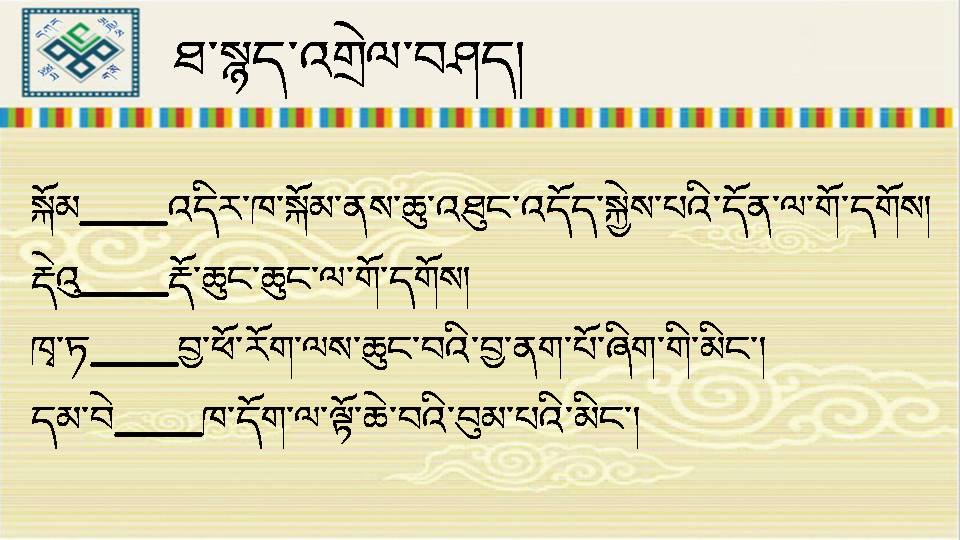 ཐ་སྙད་འགྲེལ་བཤད།
སྐོམ_____འདིར་ཁ་སྐོམ་ནས་ཆུ་འཐུང་འདོད་སྐྱེས་པའི་དོན་ལ་གོ་དགོས།
རྡེའུ_____རྡོ་ཆུང་ཆུང་ལ་གོ་དགོས།
ཁྭ་ཏ_____བྱ་ཕོ་རོག་ལས་ཆུང་བའི་བྱ་ནག་པོ་ཞིག་གི་མིང་།
དམ་བེ_____ཁ་དོག་ལ་ལྟོ་ཆེ་བའི་བུམ་པའི་མིང་།